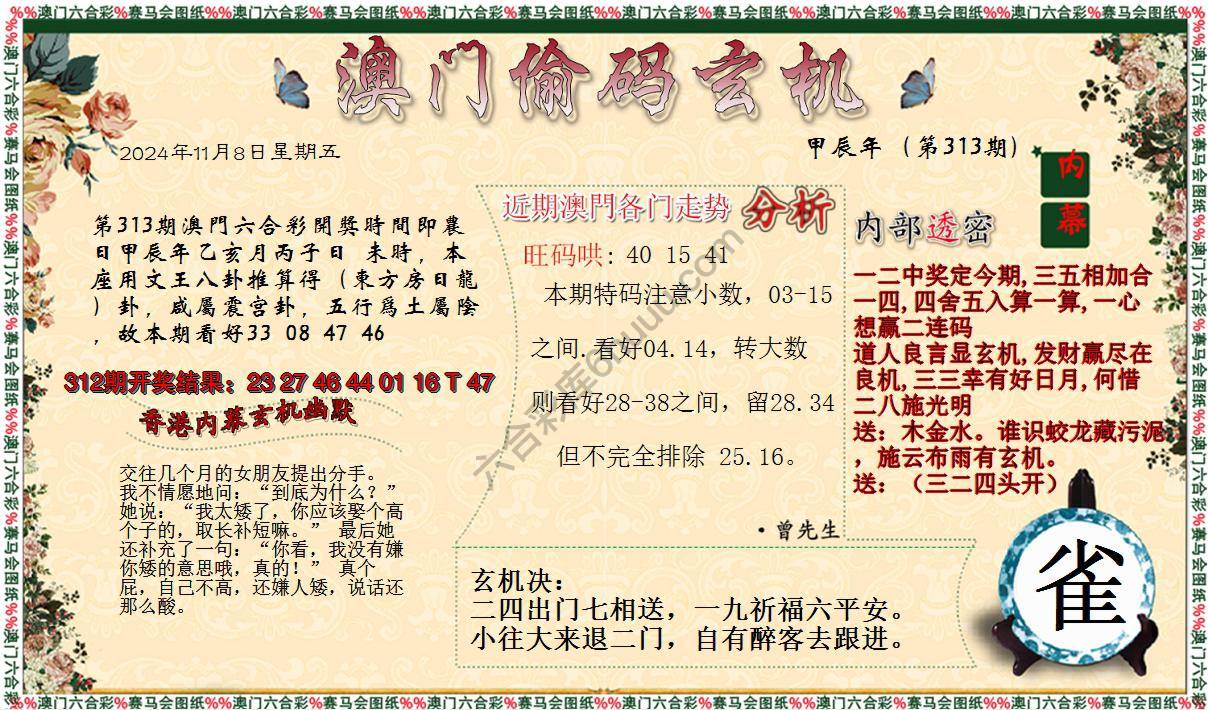 %%澳门六合彩%赛马会图纸%%澳门六合彩%赛马会图纸%%澳门六合彩%赛马会图纸%%澳门六合彩%赛马会图纸%%澳门六合彩%赛马会图纸%%澳门六合彩%赛马会图纸%%
澳门偷码玄机
2024年11月8日星期五
甲辰年（第313期）
内
幕
第313期澳門六合彩開獎時間即農
日甲辰年乙亥月丙子日 未時，本
座用文王八卦推算得（東方房日龍
）卦，咸屬震宫卦，五行爲土屬陰
，故本期看好33 08 47 46
312期开奖结果：23 27 46 44 01 16 T 47
香港内幕玄机幽默
交往几个月的女朋友提出分手。
我不情愿地问：“到底为什么？”
她说：“我太矮了，你应该娶个高
个子的，取长补短嘛。” 最后她
还补充了一句：“你看，我没有嫌
你矮的意思哦，真的！” 真个
屁，自己不高，还嫌人矮，说话还
那么酸。
近期澳門各门走势 分析
旺码哄: 40 15 41
本期特码注意小数，03-15
之间.看好04.14，转大数
则看好28-38之间，留28.34
但不完全排除 25.16。
·曾先生
玄机决：
二四出门七相送，一九祈福六平安。
小往大来退二门，自有醉客去跟进。
内部透密
一二中奖定今期,三五相加合
一四,四舍五入算一算,一心
想赢二连码
道人良言显玄机,发财赢尽在
良机,三三幸有好日月,何惜
二八施光明
送：木金水。谁识蛟龙藏污泥
，施云布雨有玄机。
送：（三二四头开）
雀
六合彩库
%%澳门六合彩%赛马会图纸%%澳门六合彩%赛马会图纸%%澳门六合彩%赛马会图纸%%澳门六合彩%赛马会图纸%%澳门六合彩%赛马会图纸%%澳门六合彩%赛马会图纸%%